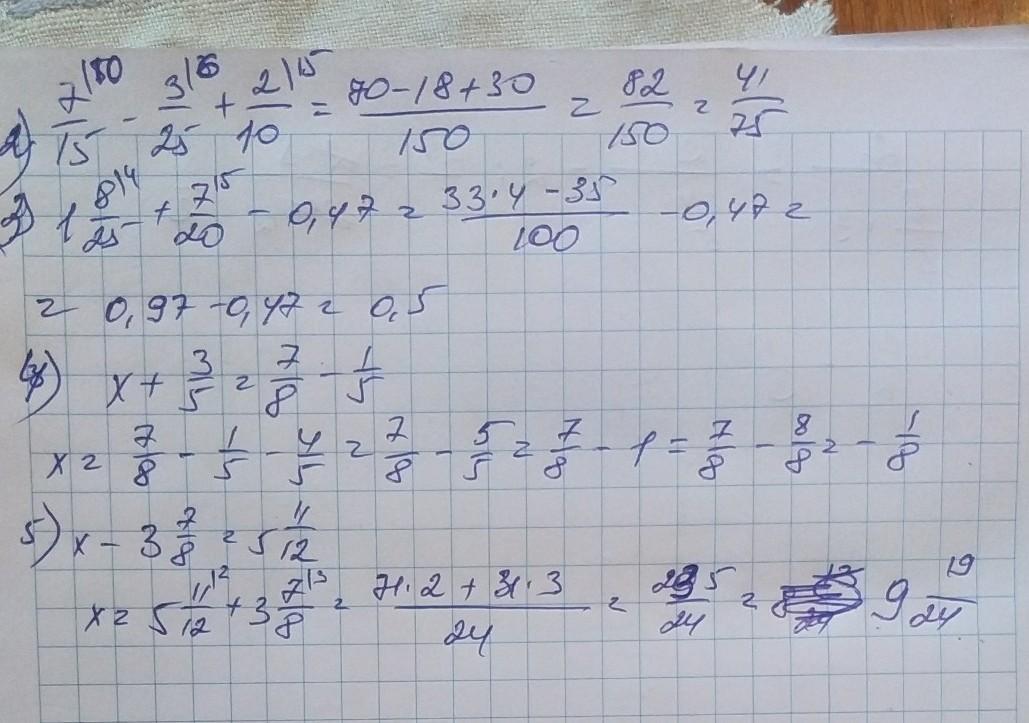 2) 7/15 |10 - 3/25 |6 + 2/10 |15 = (70-18+30)/150 = 82/150 = 41/75
3) 1 8/25 |4 + 7/20 |5 - 0,47 = (33·4-35)/100 - 0,47 =
= 0,97-0,47 = 0,5
4) x + 3/5 = 7/8 - 1/5
x = 7/8 - 1/5 - 4/5 = 7/8 - 5/5 = 7/8 - 1 = 7/8 - 8/8 = - 1/8
5) x - 3 7/8 = 5 11/12
x = 5 11/12 |2 + 3 7/8 |3 = (71·2 + 31·3)/24 = 235/24 = 9 19/24